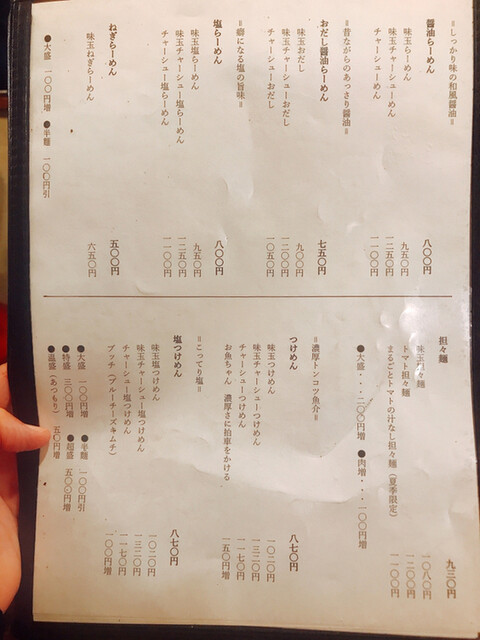 ＝しっかり味の和風醤油＝
醤油らーめん　八〇〇円
味玉らーめん　九五〇円
味玉チャーシューめん　一二五〇円
チャーシューめん　一一〇〇円
＝昔ながらのあっさり醤油＝
おだし醤油らーめん　七五〇円
味玉おだし　九〇〇円
味玉チャーシューおだし　一二〇〇円
チャーシューおだし　一〇五〇円
＝癖になる塩の旨味＝
塩らーめん　八〇〇円
味玉塩らーめん　九五〇円
味玉チャーシュー塩らーめん　一二五〇円
チャーシュー塩らーめん　一一〇〇円
ねぎらーめん　五〇〇円
味玉ねぎらーめん　六五〇円
●大盛　一〇〇円増　●半麺　一〇〇円引
担々麺　九三〇円
味玉担々麺　一〇八〇円
トマト担々麺　一二〇〇円
まるごとトマトの汁なし担々麺（夏季限定）　一一〇〇円
●大盛・・・二〇〇円増　●肉増・・・一〇〇円増
＝濃厚トンコツ魚介＝
つけめん　八七〇円
味玉つけめん　一〇二〇円
味玉チャーシューつけめん　一三二〇円
チャーシューつけめん　一一七〇円
お魚ちゃん　濃厚さに拍車をかける　一五〇円増
＝こってり塩＝
塩つけめん　八七〇円
味玉塩つけめん　一〇二〇円
味玉チャーシュー塩つけめん　一三二〇円
チャーシュー塩つけめん　一一七〇円
ブッチ（ブルーチーズキムチ）　一〇〇円増
●大盛　一〇〇円増　●半麺　一〇〇円引
●特盛　三〇〇円増　●超盛　五〇〇円増
●温盛（あつもり）　五〇円増